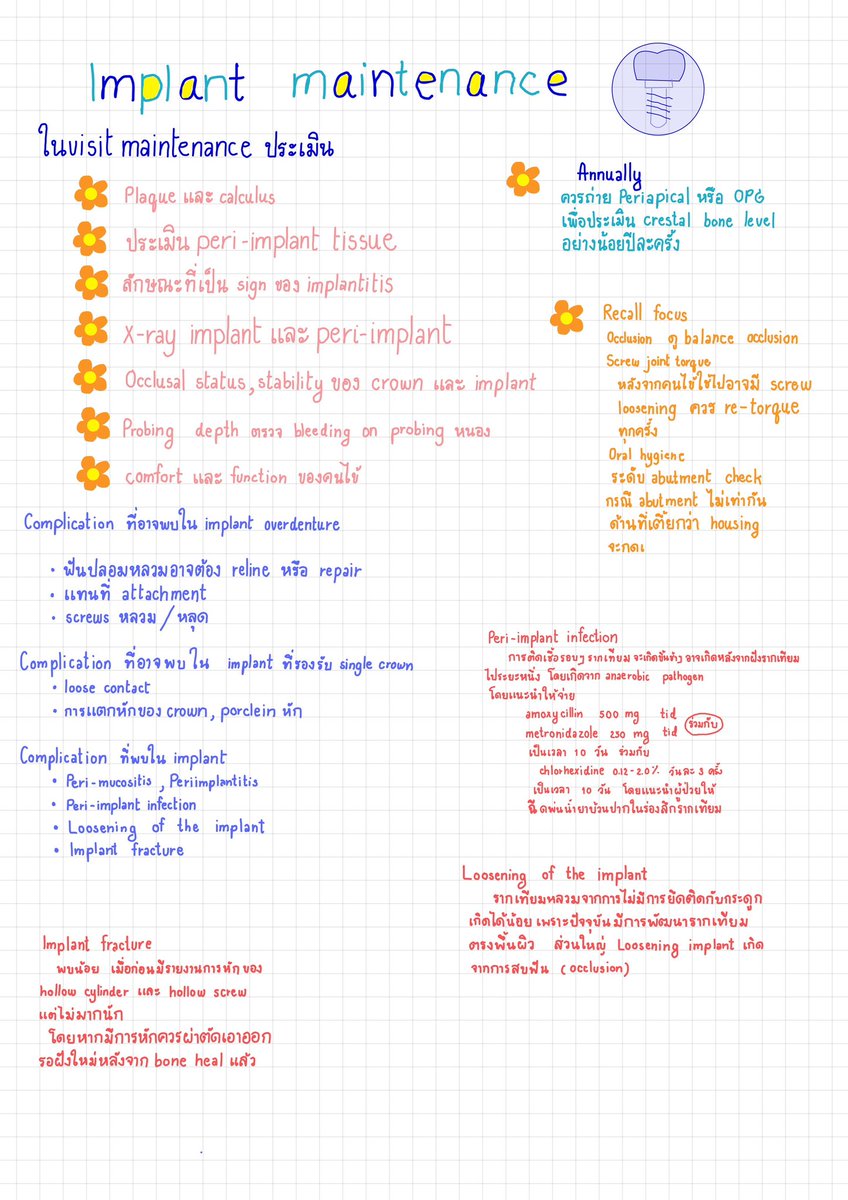 Implant maintenance
ในvisit maintenance ประเมิน
Plaque และ calculus
ประเมิน peri-implant tissue
ลักษณะที่เป็น sign ของ implantitis
X-ray implant และ peri-implant
Occlusal status, stability ของ crown และ implant
Probing depth ตรวจ bleeding on probing หนอง
comfort และ function ของคนไข้
Annually
ควรถ่าย Periapical หรือ OPG
เพื่อประเมิน crestal bone level
อย่างน้อยปีละครั้ง
Recall focus
Occlusion ดู balance occlusion
Screw joint torque
หลังจากคนไข้ใช้ไปอาจมี screw
loosening ควร re-torque
ทุกครั้ง
Oral hygiene
ระดับ abutment check
กรณี abutment ไม่เท่ากัน
ด้านที่เตี้ยกว่า housing
จะกดเ
Complication ที่อาจพบใน implant overdenture
• ฟันปลอมหลวมอาจต้อง reline หรือ repair
• แทนที่ attachment
• screws หลวม / หลุด
Complication ที่อาจพบใน implant ที่รองรับ single crown
• loose contact
• การแตกหักของ crown, porclein หัก
Complication ที่พบใน implant
• Peri-mucositis, Periimplantitis
• Peri-implant infection
• Loosening of the implant
• Implant fracture
Peri-implant infection
การติดเชื้อรอบๆ รากเทียม จะเกิดขึ้นช้าๆ อาจเกิดหลังจากฝังรากเทียม
ไประยะหนึ่ง โดยเกิดจาก anaerobic pathogen
โดยแนะนำให้จ่าย
amoxycillin 500 mg tid
metronidazole 250 mg tid ร่วมกับ
เป็นเวลา 10 วัน ร่วมกับ
chlorhexidine 0.12-2.0% วันละ 3 ครั้ง
เป็นเวลา 10 วัน โดยแนะนำผู้ป่วยให้
ฉีดพ่นน้ำยาบ้วนปากในร่องลึกรากเทียม
Loosening of the implant
รากเทียมหลวมจากการไม่มีการยึดติดกับกระดูก
เกิดได้น้อย เพราะปัจจุบันมีการพัฒนารากเทียม
ตรงพื้นผิว ส่วนใหญ่ Loosening implant เกิด
จากการสบฟัน (occlusion)
Implant fracture
พบน้อย เมื่อก่อนมีรายงานการหักของ
hollow cylinder และ hollow screw
แต่ไม่มากนัก
โดยหากมีการหักควรผ่าตัดเอาออก
รอฝังใหม่หลังจาก bone heal แล้ว